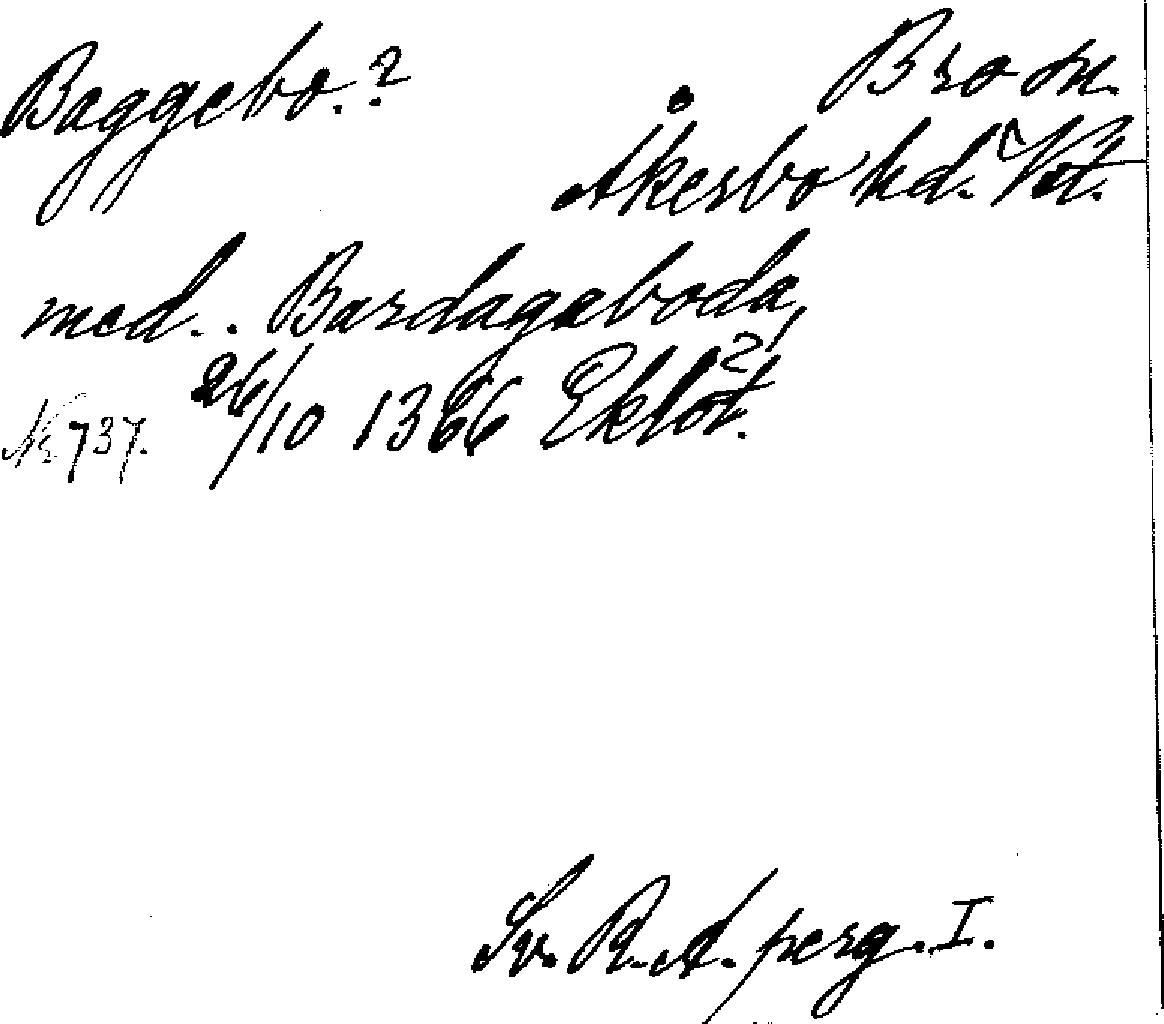 Baggebo.?
Bro sn.
Åkerbo hd. Vstm.
med. Bardagaboda,
26/10 1366 Eklöt.?
No 737.
Sv. R.A. perg. I.